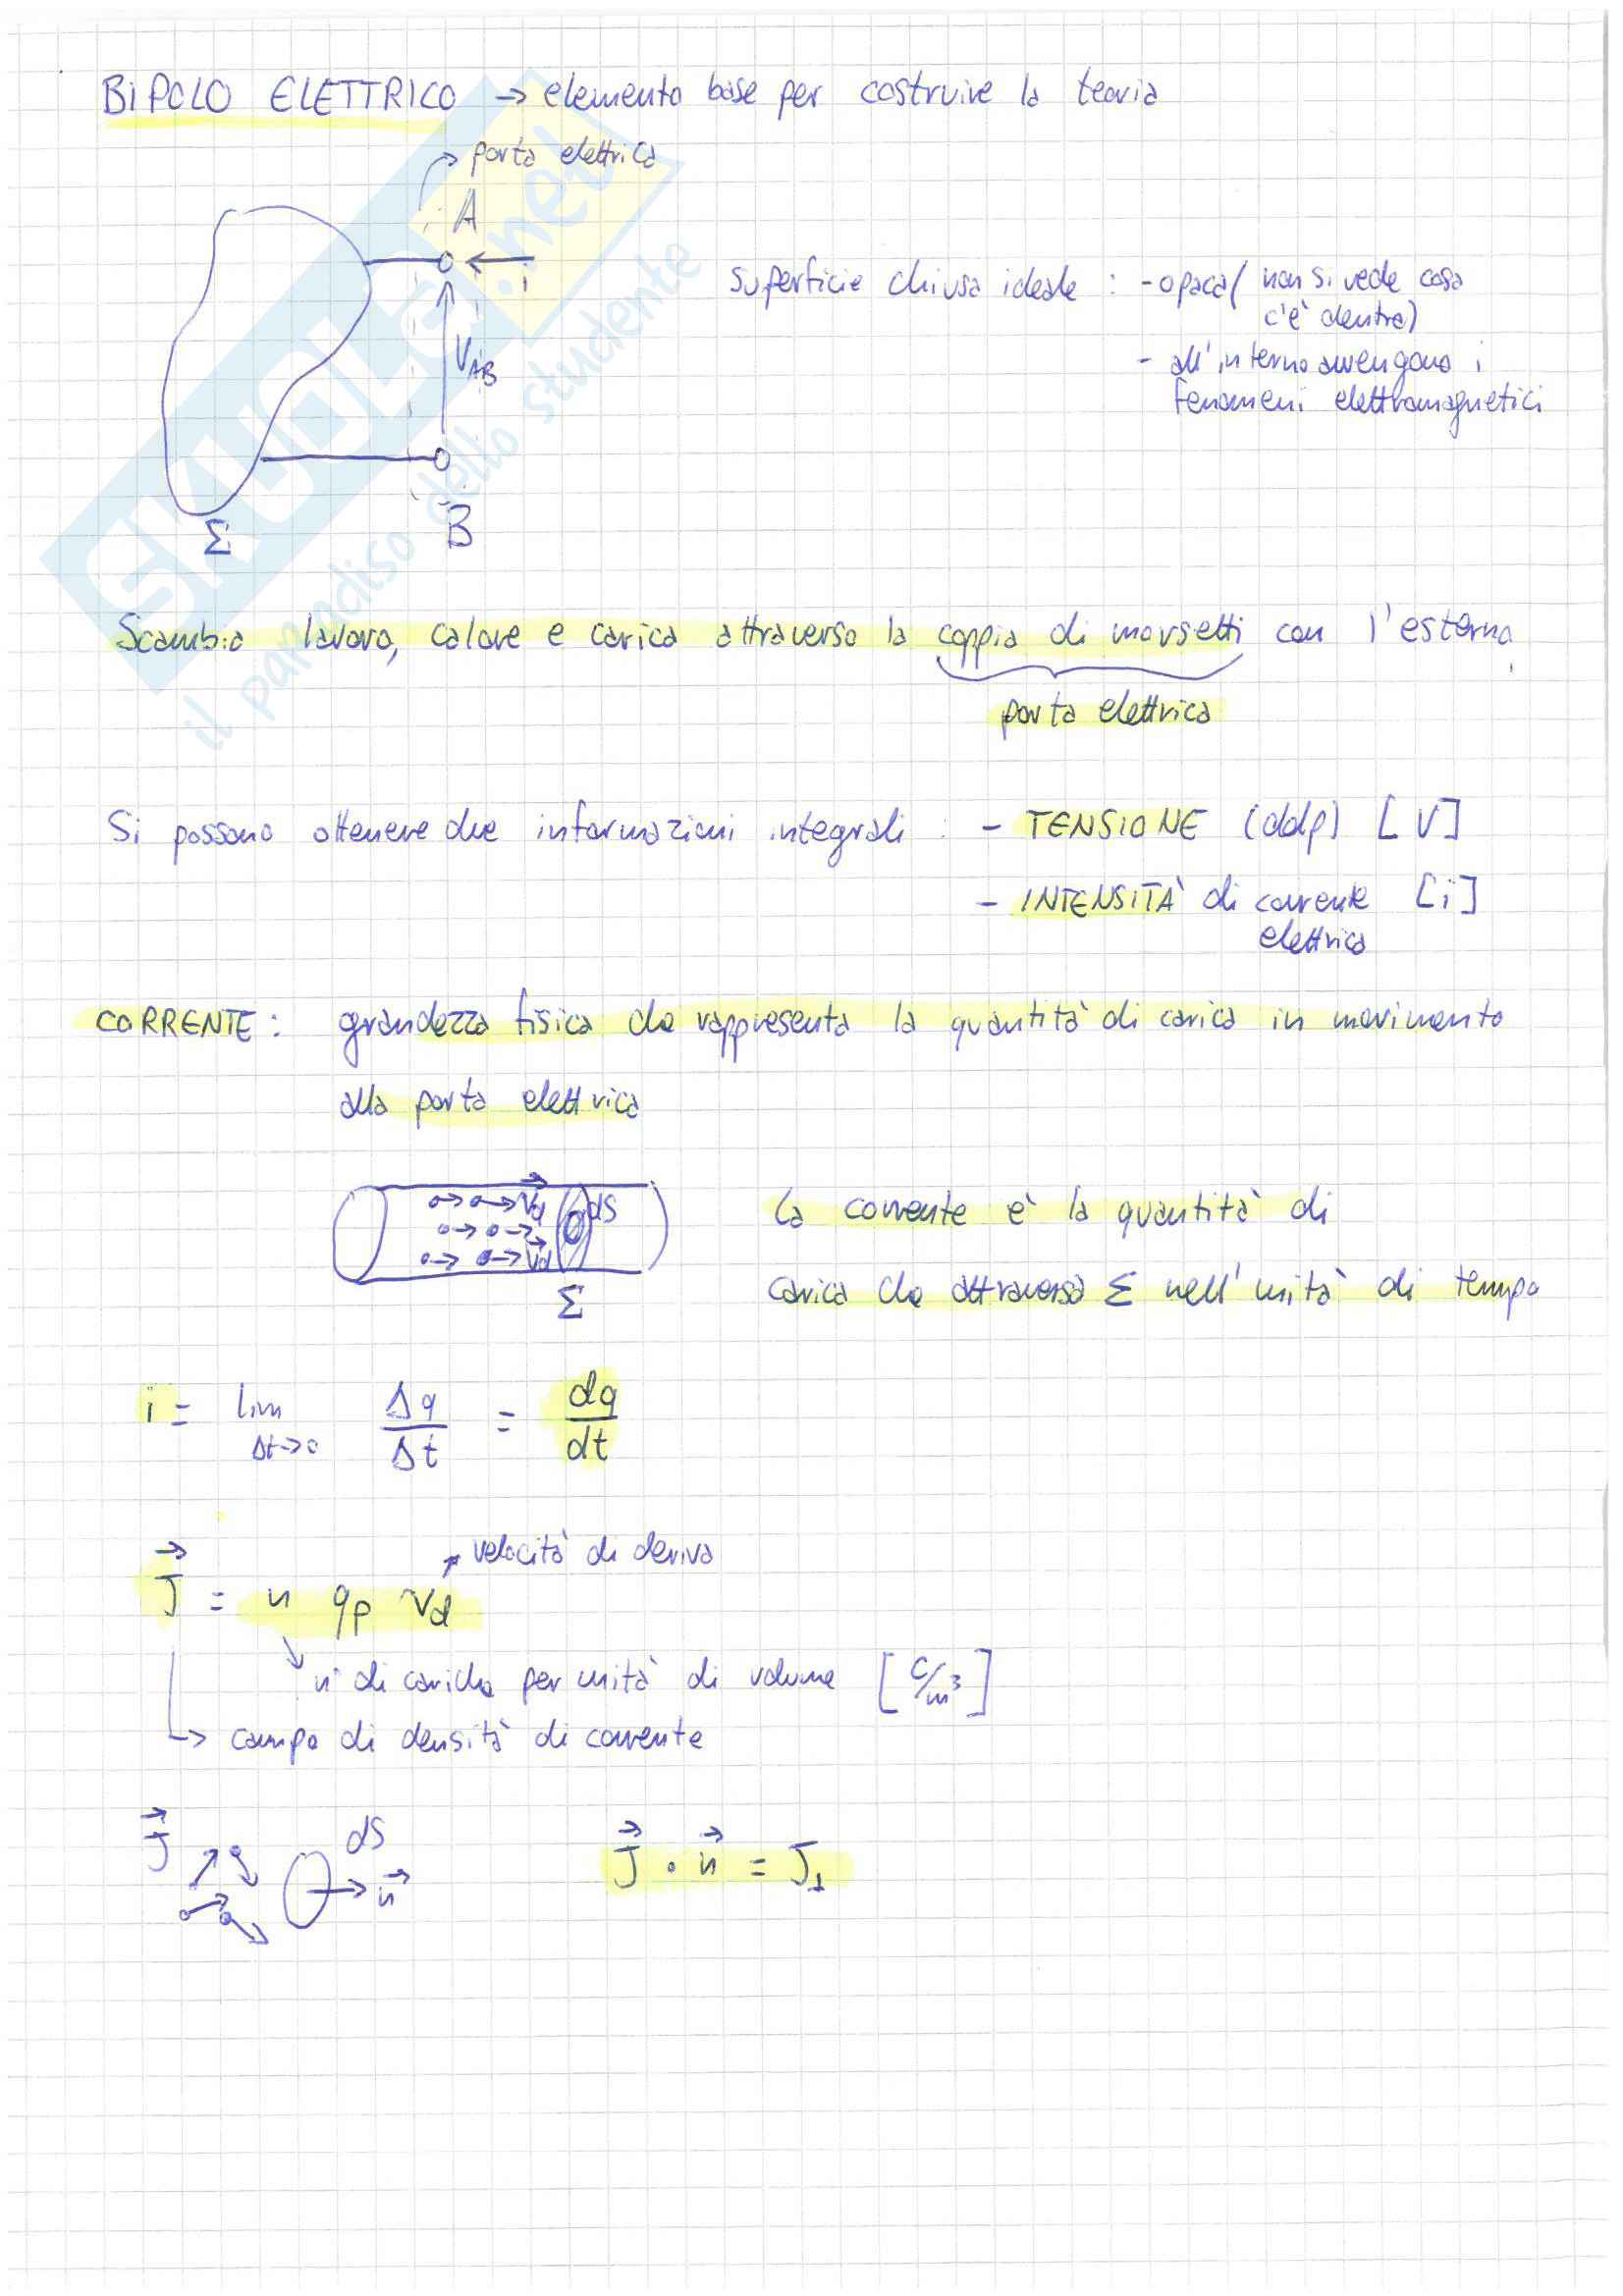 BIPOLO ELETTRICO → elemento base per costruire la teoria
porta elettrica
A
i
superficie chiusa ideale : - opaca ( non si vede cosa
c'è dentro)
V_AB
- all'interno avvengono i
fenomeni elettromagnetici
Σ
B
SKUOLA.net
il paradiso dello studente
Scambia lavoro, calore e carica attraverso la coppia di morsetti con l'esterno
porta elettrica
Si possono ottenere due informazioni integrali : - TENSIONE (ddp) [V]
- INTENSITÀ di corrente [i]
elettrica
CORRENTE : grandezza fisica che rappresenta la quantità di carica in movimento
alla porta elettrica
v⃗d dS
v⃗d
Σ
La corrente è la quantità di
carica che attraversa Σ nell'unità di tempo
i = lim Δt→0 Δq/Δt = dq/dt
→ velocità di deriva
J⃗ = n qp vd
n° di cariche per unità di volume [C/m³]
→ campo di densità di corrente
J⃗ dS n⃗
J⃗ · n⃗ = J⊥